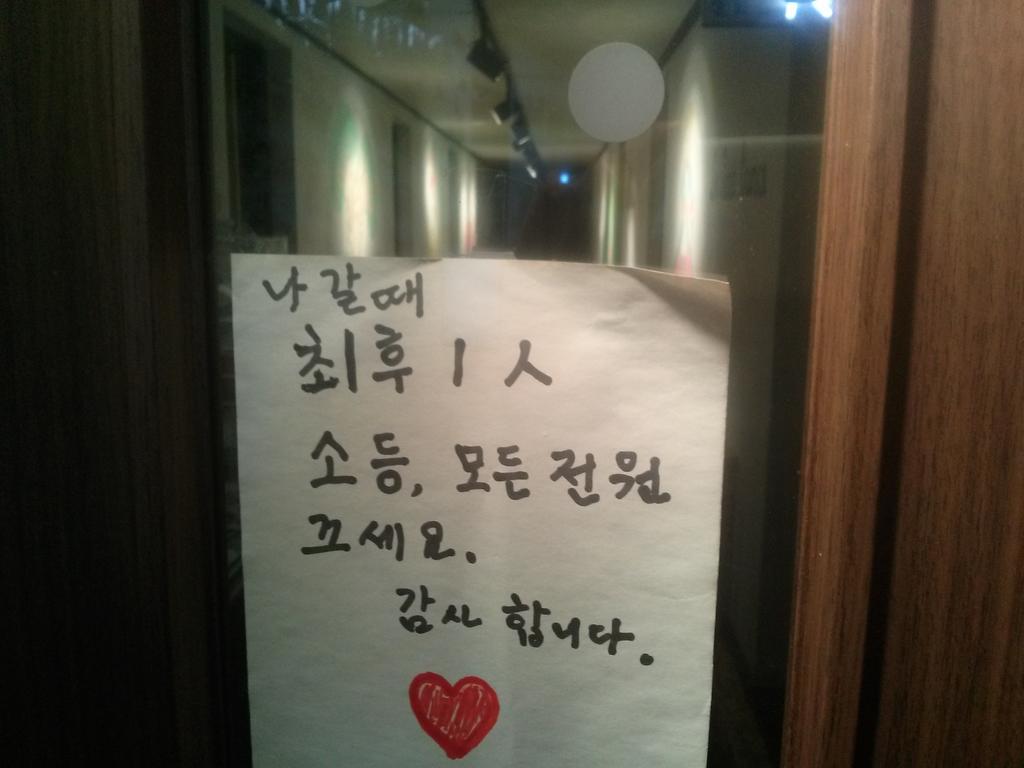 나갈때
최후 1人
소등, 모든 전원
끄세요.
감사 합니다.